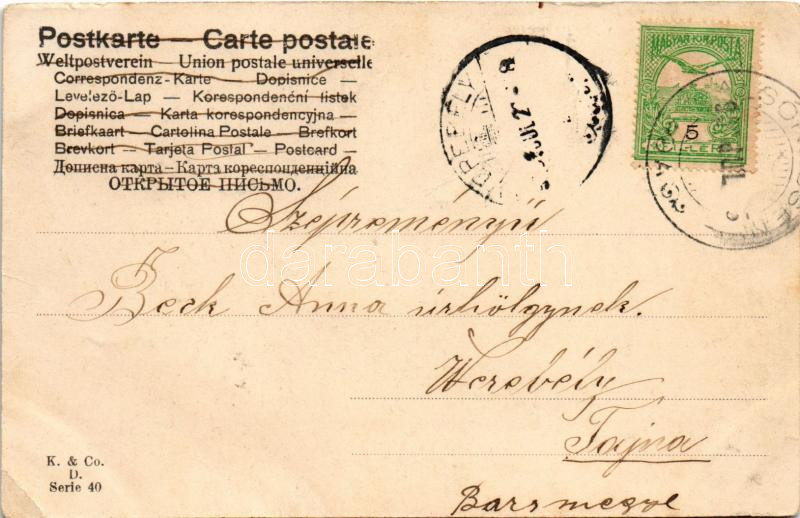 Postkarte — Carte postale
Weltpostverein — Union postale universelle
Correspondenz-Karte — Dopisnice —
Levelező-Lap — Korespondenční listek
Dopisnica — Karta korespondencyjna —
Briefkaart — Cartolina Postale — Brefkort
Brevkort — Tarjeta Postal — Postcard —
Дописна карта — Карта кореспонденційна
ОТКРЫТОЕ ПИСЬМО.
MAGYAR KIR. POSTA
5
VEREBÉLY
Szépreményű
darabanth
Beck Anna úrhölgynek.
Werebély
Tajna
Barsmegye
K. & Co.
D.
Serie 40